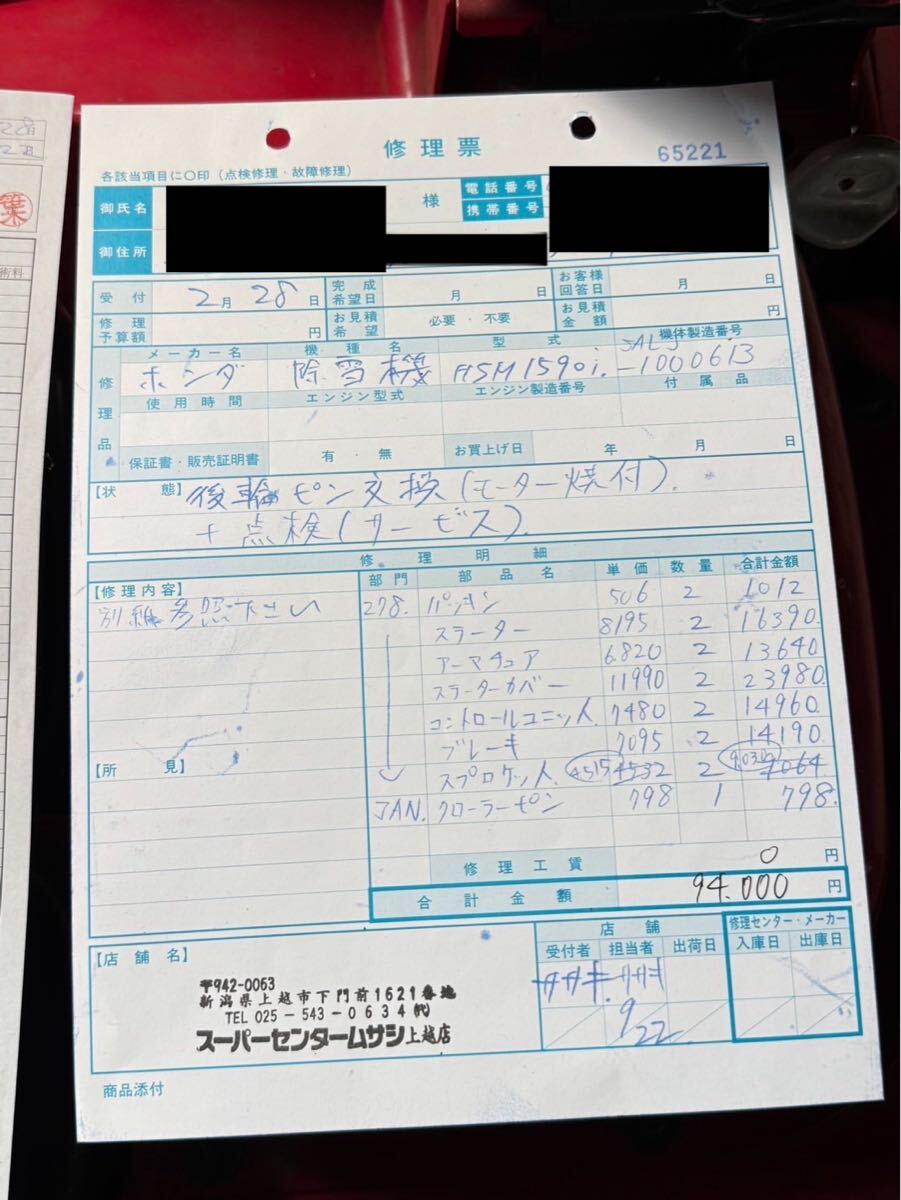 修理票
65221
各該当項目に〇印（点検修理・故障修理）
御氏名
様
電話番号
携帯番号
御住所
受付 2月28日 完成希望日 月 日 お客様回答日 月 日
修理予算額 円 お見積希望 必要・不要 お見積金額 円
修理品
メーカー名 機種名 型式 機体製造番号
ホンダ 除雪機 HSM1590i. SALJ-1000613
使用時間 エンジン型式 エンジン製造番号 付属品
保証書・販売証明書 有・無 お買上げ日 年 月 日
【状態】後輪ピン交換(モーター焼付).
+点検(サービス).
修理明細
【修理内容】 部門 部品名 単価 数量 合計金額
別紙参照下さい 278. パッキン 506 2 1012
スラーター 8195 2 16390.
アーマチュア 6820 2 13640.
スラーターカバー 11990 2 23980.
コントロールユニット. 7480 2 14960.
ブレーキ 7095 2 14190.
【所見】 スプロケット. 4515 4532 2 9030 9064
JAN. クローラーピン 798 1 798.
修理工賃 0 円
合計金額 94.000 円
【店舗名】
〒942-0063
新潟県上越市下門前1621番地
TEL 025-543-0634㈹
スーパーセンタームサシ上越店
店舗
受付者 担当者 出荷日
ササキ. ササキ
9/22
修理センター・メーカー
入庫日 出庫日
商品添付